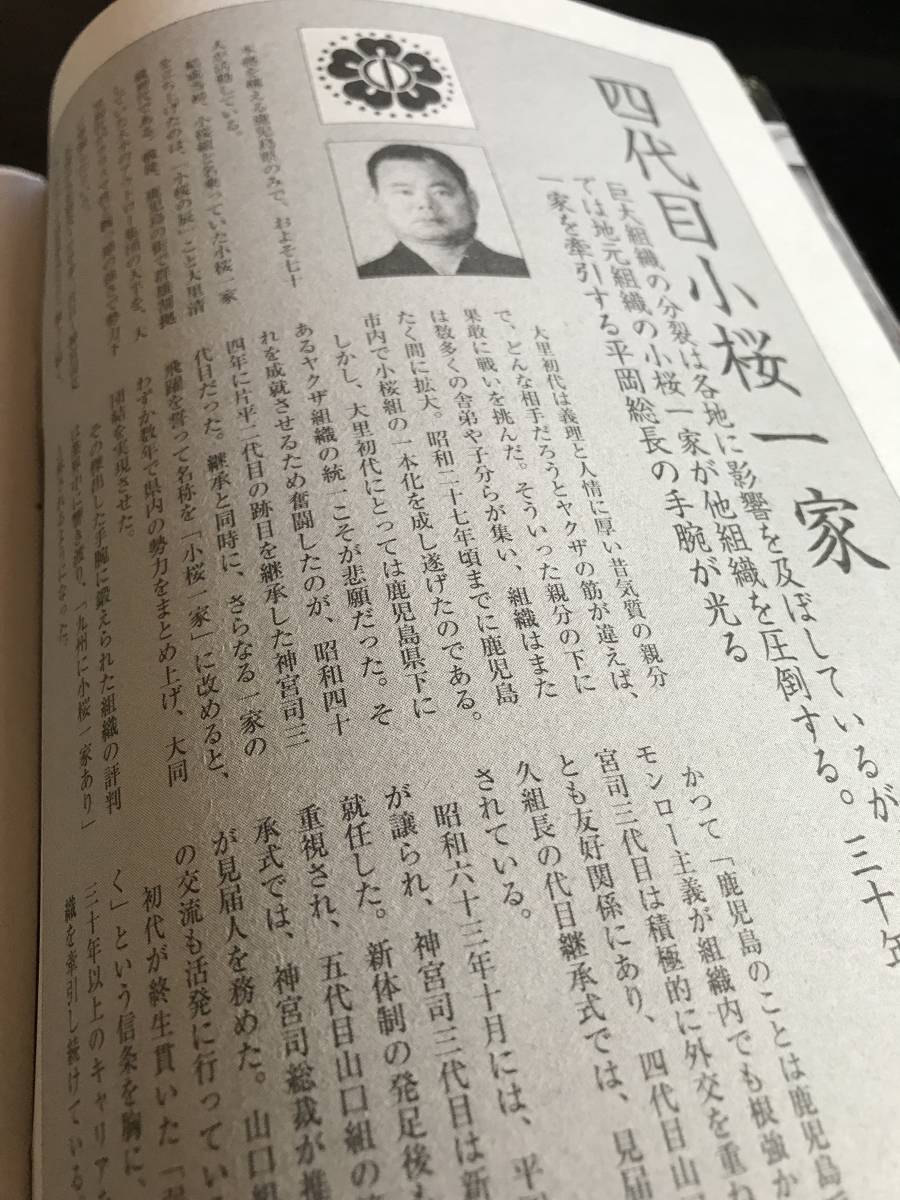 四代目小桜一家
巨大組織の分裂は各地に影響を及ぼしているが、三十年
では地元組織の小桜一家が他組織を圧倒する。
一家を牽引する平岡総長の手腕が光る
本拠を構える鹿児島県のみで、およそ七十
人が活動している。
結成当初、小桜組と名乗っていた小桜一家
を立ち上げたのは、「小桜の辰」こと大里清
大里初代は義理と人情に厚い昔気質の親分
で、どんな相手だろうとヤクザの筋が違えば、
果敢に戦いを挑んだ。そういった親分の下に
は数多くの舎弟や子分らが集い、組織はまた
たく間に拡大。昭和二十七年頃までに鹿児島
市内で小桜組の一本化を成し遂げたのである。
しかし、大里初代にとっては鹿児島県下に
あるヤクザ組織の統一こそが悲願だった。そ
れを成就させるため奮闘したのが、昭和四十
四年に片平二代目の跡目を継承した神宮司三
代目だった。継承と同時に、さらなる一家の
飛躍を誓って名称を「小桜一家」に改めると、
わずか数年で県内の勢力をまとめ上げ、大同
団結を実現させた。
その傑出した手腕に鍛えられた組織の評判
は業界中に響き渡り、「九州に小桜一家あり」
かつて「鹿児島のことは鹿児島
モンロー主義が組織内でも根強か
宮司三代目は積極的に外交を重
とも友好関係にあり、四代目山
久組長の代目継承式では、見届
されている。
昭和六十三年十月には、平
が譲られ、神宮司三代目は新
就任した。新体制の発足後も
重視され、五代目山口組の
承式では、神宮司総裁が推
が見届人を務めた。山口組
の交流も活発に行ってい
初代が終生貫いた「
く」という信条を胸に、
三十年以上のキャリア
織を牽引し続けている